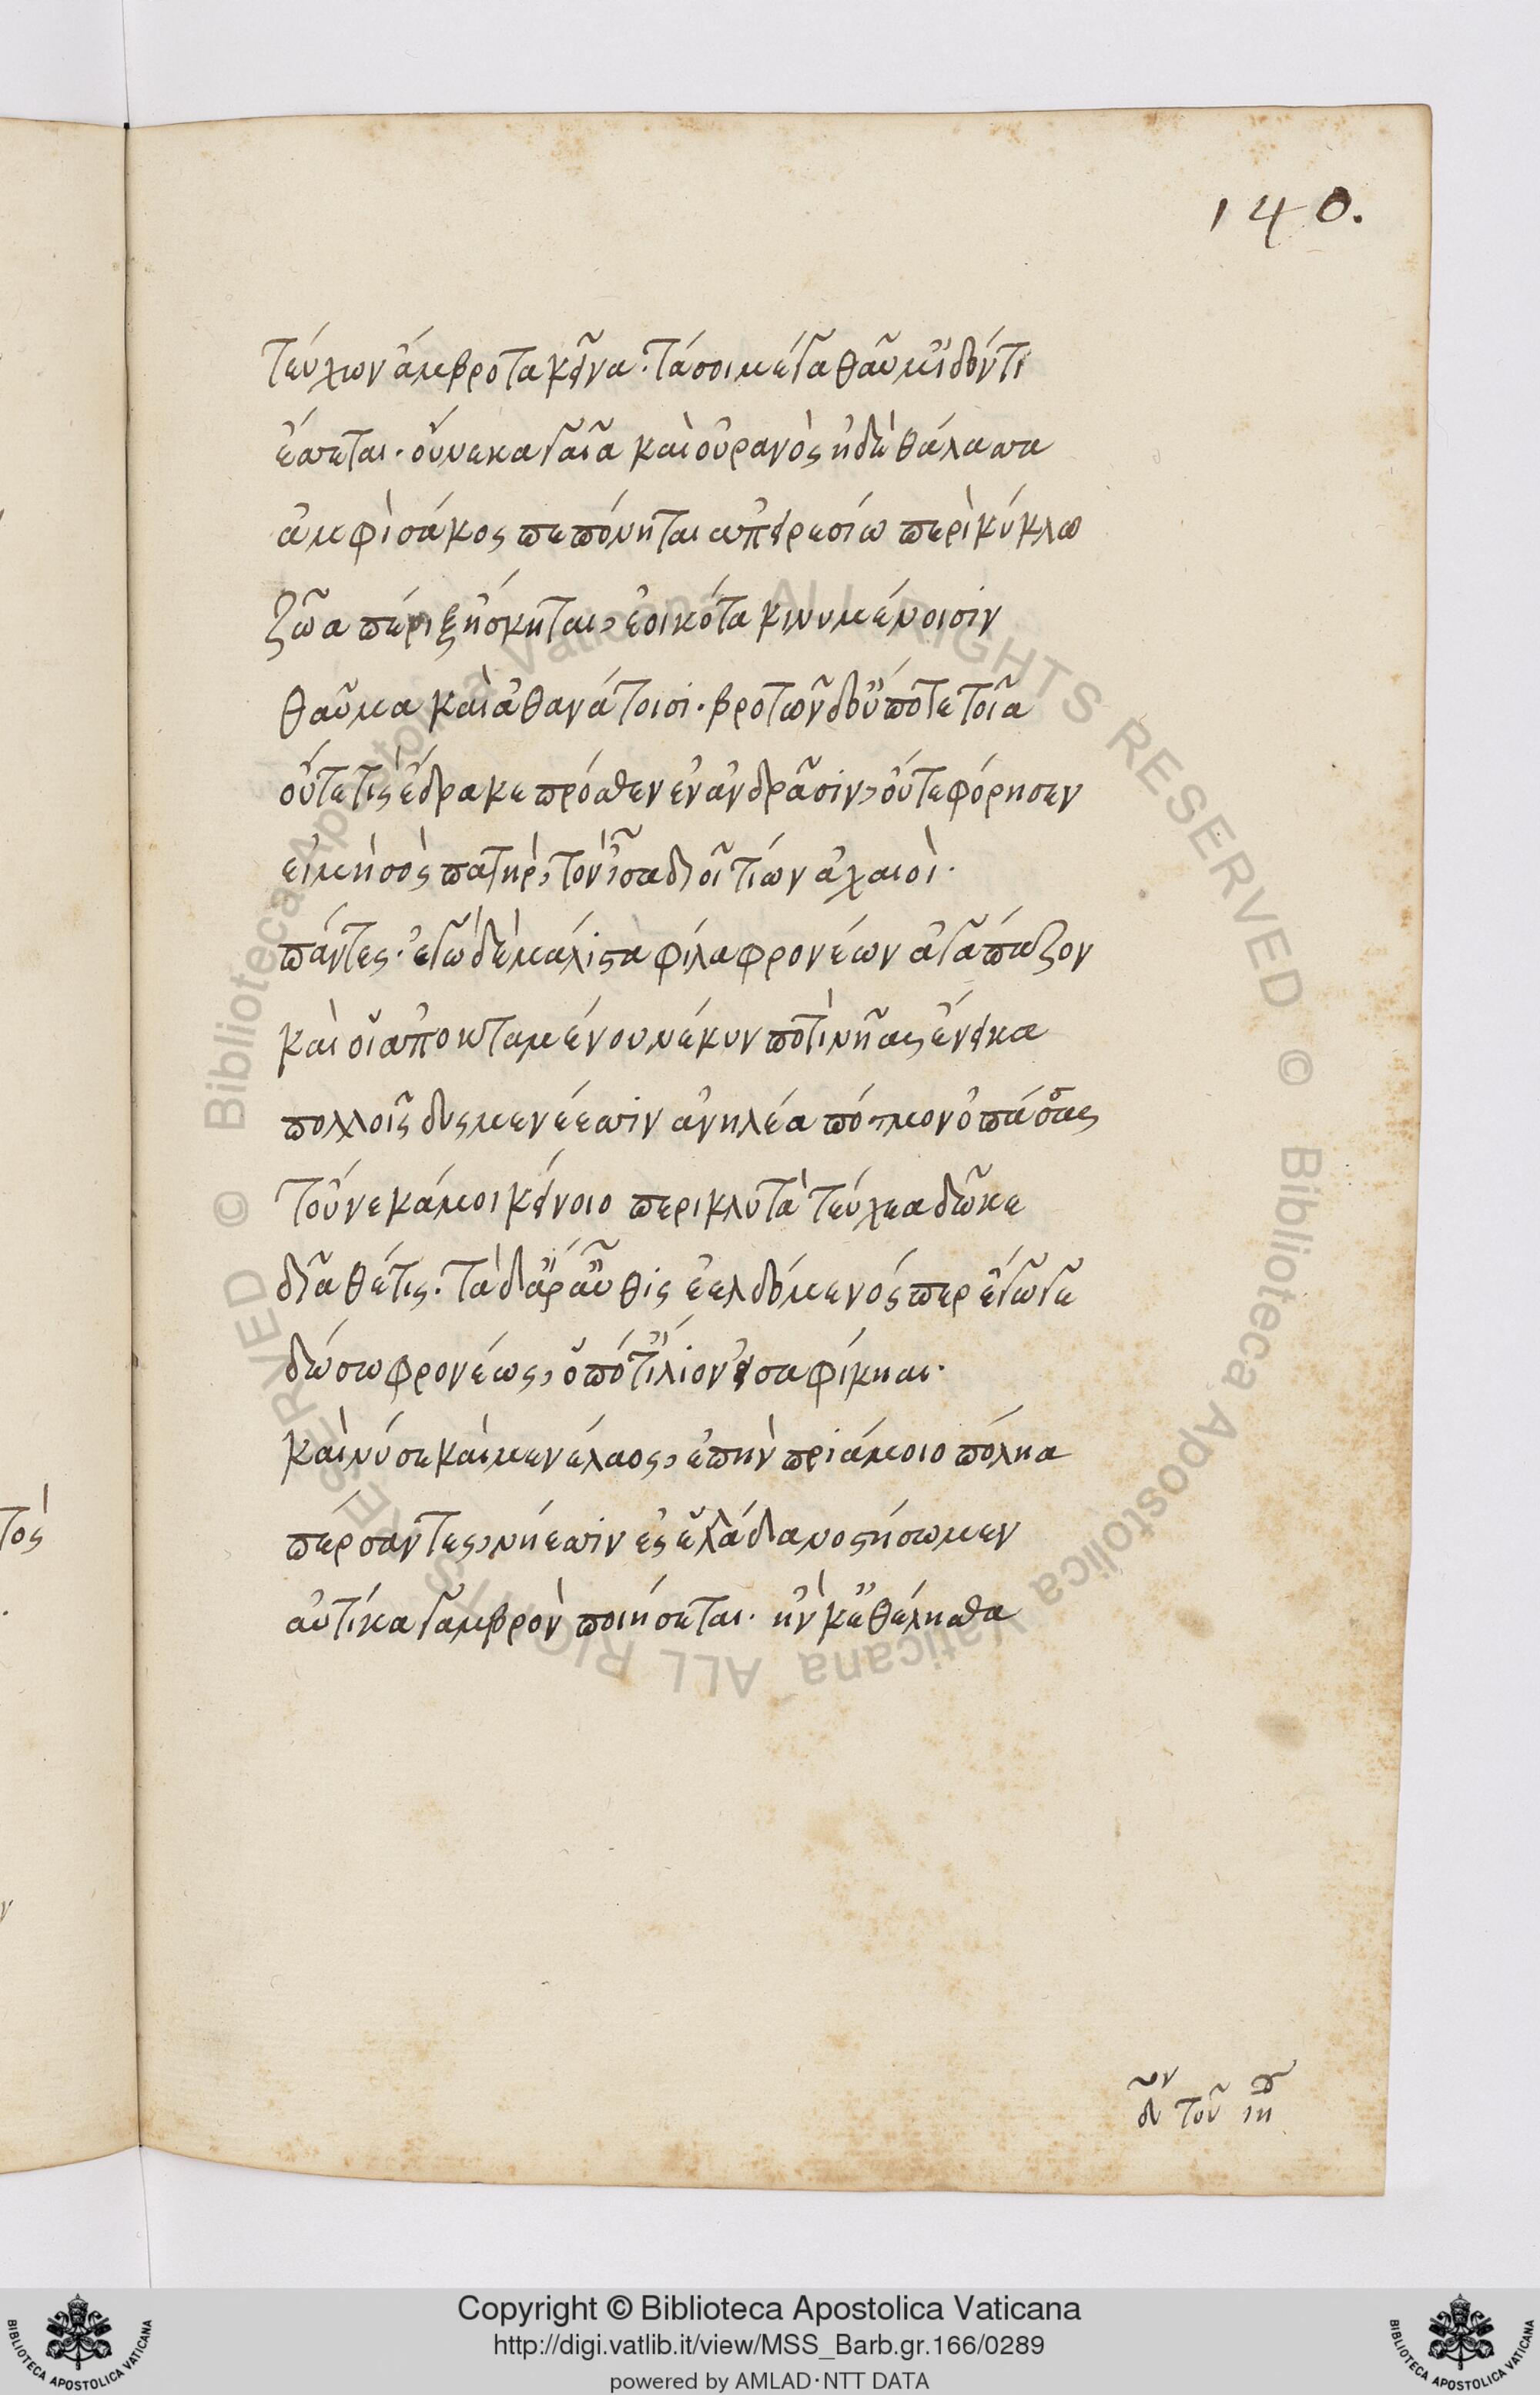 140.
τεύχων ἄμβροτα κεῖνα· τά σοι μέγα θαῦμ' ἰδόντι
ἔσσεται· οὕνεκα γαῖα καὶ οὐρανὸς ἠδὲ θάλασσα
ἀμφὶ σάκος πεπόνηται ἀπειρεσίω περὶ κύκλω
ζῶα πέριξ ἤσκηται, ἐοικότα κινυμένοισιν
θαῦμα καὶ ἀθανάτοισι· βροτῶν δ' οὔποτε τοῖα
οὔτε τις ἔδρακε πρόσθεν ἐν ἀνδρᾶσιν, οὔτε φόρησεν
εἰ μὴ σὸς πατὴρ, τὸν ἶσα διῒ τίων ἀχαιοὶ·
πάντες· ἐγὼ δὲ μάλιστα φίλα φρονέων ἀγάπαζον
καὶ οἷ ἀποκταμένου νέκυν ποτὶ νῆας ἔνεικα
πολλοῖς δυσμενέεσσιν ἀνηλέα πότμον ὀπάσσας
τοὔνεκά μοι κείνοιο περικλυτὰ τεύχεα δῶκε
δῖα θέτις· τὰ δ' ἂρ αὖθις ἐελδόμενός περ ἔγωγε
δώσω φρονέως, ὁπότ' ἴλιον εἰσαφίκηαι·
καὶ νύ σε καὶ μενέλαος, ἐπὴν πριάμοιο πόληα
πέρσαντες, νήεσσιν ἐς ἑλλάδα νοστήσωμεν
αὐτίκα γαμβρὸν ποιήσεται· ἢν κ' ἐθέλησθα
τοῦ
Copyright © Biblioteca Apostolica Vaticana
http://digi.vatlib.it/view/MSS_Barb.gr.166/0289
powered by AMLAD·NTT DATA